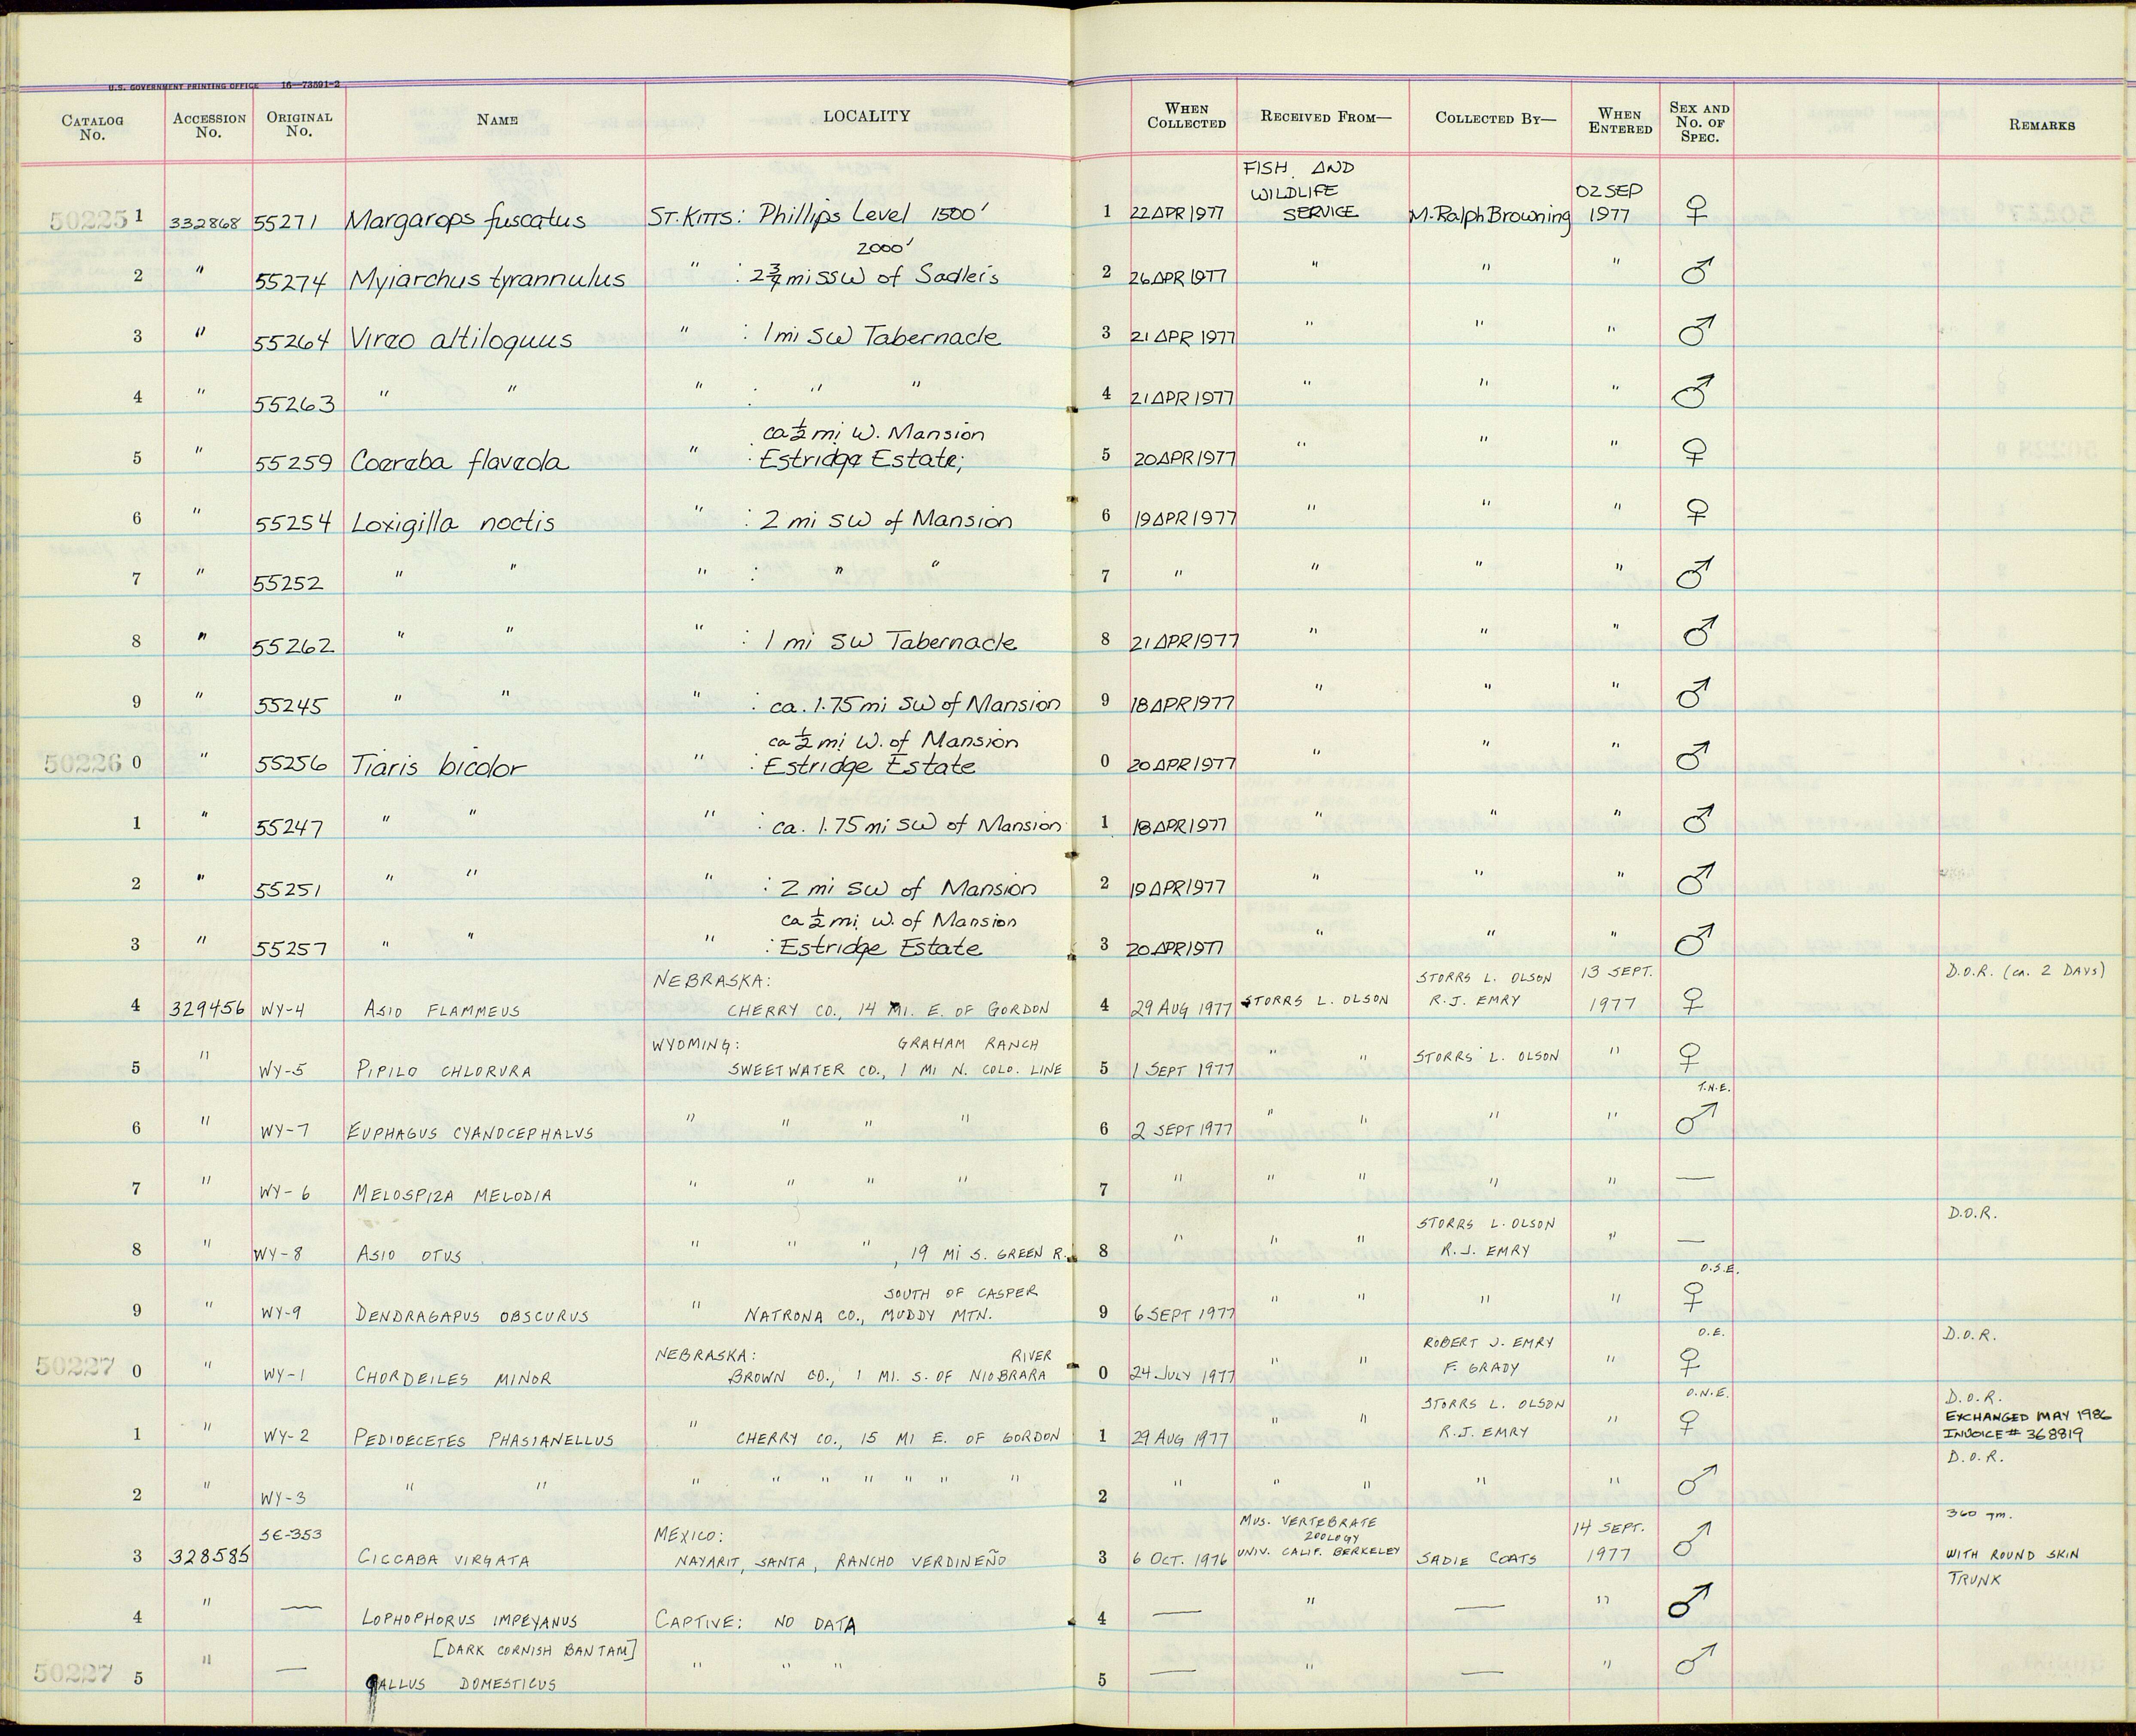 U.S. GOVERNMENT PRINTING OFFICE 16—73591-2
CATALOG No. ACCESSION No. ORIGINAL No. NAME LOCALITY WHEN COLLECTED RECEIVED FROM— COLLECTED BY— WHEN ENTERED SEX AND No. OF SPEC. REMARKS
50225 1 332868 55271 Margarops fuscatus ST. KITTS: Phillips Level 1500' 1 22 APR 1977 FISH AND WILDLIFE SERVICE M. Ralph Browning 02 SEP 1977 ♀
2 " 55274 Myiarchus tyrannulus " : 2000' 2 3/4 mi SSW of Sadler's 2 26 APR 1977 " " " ♂
3 " 55264 Vireo altiloquus " : 1 mi SW Tabernacle 3 21 APR 1977 " " " ♂
4 " 55263 " " " : " " 4 21 APR 1977 " " " ♂
5 " 55259 Coereba flaveola " : ca 1/2 mi W. Mansion Estridge Estate; 5 20 APR 1977 " " " ♀
6 " 55254 Loxigilla noctis " : 2 mi SW of Mansion 6 19 APR 1977 " " " ♀
7 " 55252 " " " : " " 7 " " " " ♂
8 " 55262 " " " : 1 mi SW Tabernacle 8 21 APR 1977 " " " ♂
9 " 55245 " " " : ca. 1.75 mi SW of Mansion 9 18 APR 1977 " " " ♂
50226 0 " 55256 Tiaris bicolor " : ca 1/2 mi W. of Mansion Estridge Estate 0 20 APR 1977 " " " ♂
1 " 55247 " " " : ca. 1.75 mi SW of Mansion 1 18 APR 1977 " " " ♂
2 " 55251 " " " : 2 mi SW of Mansion 2 19 APR 1977 " " " ♂
3 " 55257 " " " : ca 1/2 mi. W. of Mansion Estridge Estate 3 20 APR 1977 " " " ♂
4 329456 WY-4 ASIO FLAMMEUS NEBRASKA: CHERRY CO., 14 MI. E. OF GORDON 4 29 AUG 1977 STORRS L. OLSON STORRS L. OLSON R.J. EMRY 13 SEPT. 1977 ♀ D.O.R. (ca. 2 DAYS)
5 " WY-5 PIPILO CHLORURA WYOMING: GRAHAM RANCH SWEETWATER CO., 1 MI N. COLO. LINE 5 1 SEPT 1977 " " STORRS L. OLSON " ♀
6 " WY-7 EUPHAGUS CYANOCEPHALUS " " " " 6 2 SEPT 1977 " " " " T.N.E. ♂
7 " WY-6 MELOSPIZA MELODIA " " " " 7 " " " " " —
8 " WY-8 ASIO OTUS " " " , 19 MI S. GREEN R. 8 " " " STORRS L. OLSON R.J. EMRY " — D.O.R.
9 " WY-9 DENDRAGAPUS OBSCURUS " SOUTH OF CASPER NATRONA CO., MUDDY MTN. 9 6 SEPT 1977 " " " " O.S.E. ♀
50227 0 " WY-1 CHORDEILES MINOR NEBRASKA: RIVER BROWN CO., 1 MI. S. OF NIOBRARA 0 24 JULY 1977 " " ROBERT J. EMRY F. GRADY " O.E. ♀ D.O.R.
1 " WY-2 PEDIOECETES PHASIANELLUS " CHERRY CO., 15 MI E. OF GORDON 1 29 AUG 1977 " " STORRS L. OLSON R.J. EMRY " O.N.E. ♀ D.O.R. EXCHANGED MAY 1986 INVOICE # 368819
2 " WY-3 " " " " " " " " " 2 " " " " " ♂ D.O.R.
3 328585 SC-353 CICCABA VIRGATA MEXICO: NAYARIT, SANTA, RANCHO VERDINEÑO 3 6 OCT. 1976 MUS. VERTEBRATE ZOOLOGY UNIV. CALIF. BERKELEY SADIE COATS 14 SEPT. 1977 ♂ 360 gm. WITH ROUND SKIN
4 " — LOPHOPHORUS IMPEYANUS CAPTIVE: NO DATA 4 — " — " ♂ TRUNK
50227 5 " — [DARK CORNISH BANTAM] GALLUS DOMESTICUS " " " 5 — " — " ♂